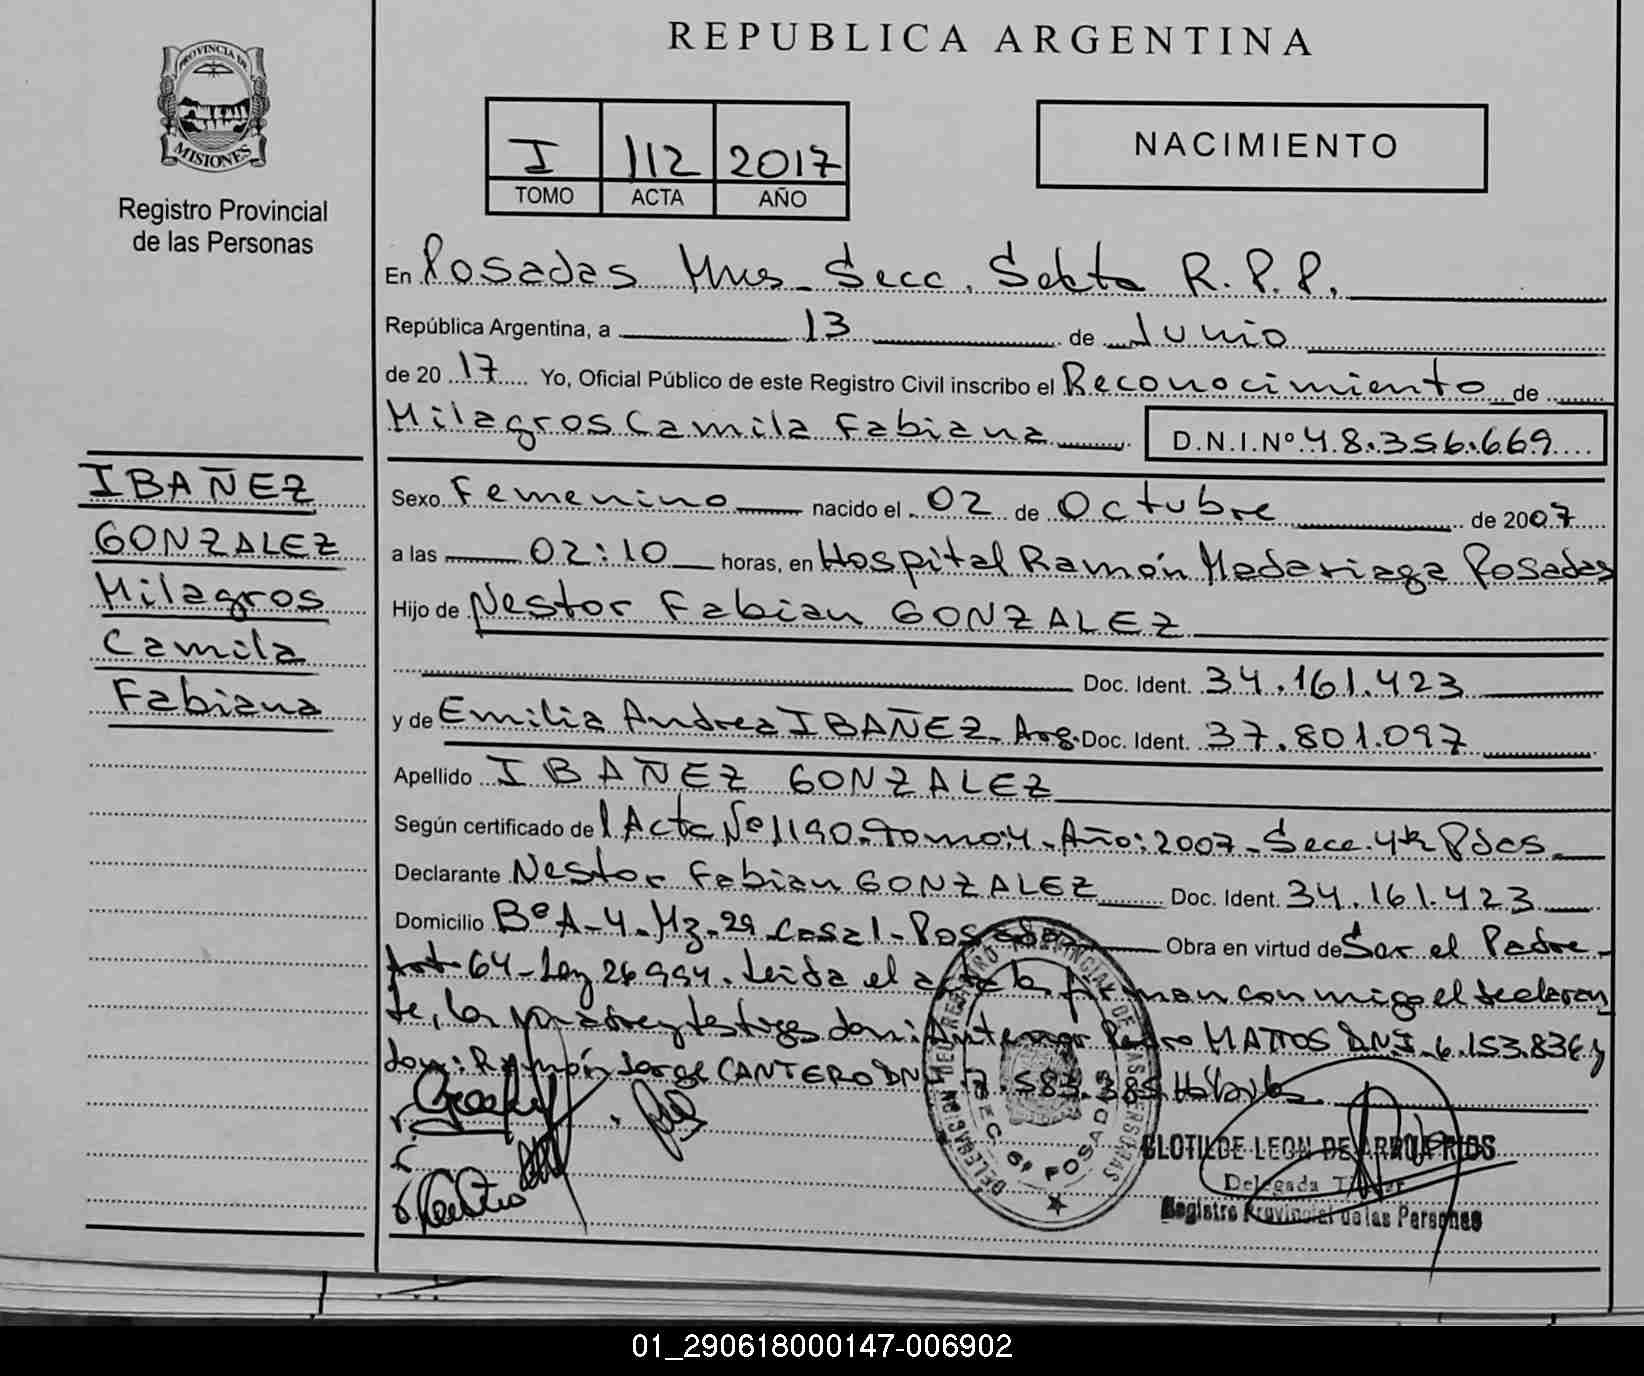 REPUBLICA ARGENTINA
PROVINCIA DE
MISIONES
Registro Provincial
de las Personas
I 112 2017
TOMO ACTA AÑO
NACIMIENTO
En Posadas Mnes - Secc. Sexta R.P.P.
República Argentina, a 13 de Junio
de 2017 Yo, Oficial Público de este Registro Civil inscribo el Reconocimiento de
Milagros Camila Fabiana D.N.I.Nº 48.356.669
IBAÑEZ
GONZALEZ
Milagros
Camila
Fabiana
Sexo Femenino nacido el 02 de Octubre de 2007
a las 02:10 horas, en Hospital Ramón Madariaga Posadas
Hijo de Nestor Fabian GONZALEZ
Doc. Ident. 34.161.423
y de Emilia Andrea IBAÑEZ - Arg. Doc. Ident. 37.801.097
Apellido IBAÑEZ GONZALEZ
Según certificado del Acta Nº 1190 - Tomo: 4 - Año: 2007 - Secc. 4ta Pdas
Declarante Nestor Fabian GONZALEZ Doc. Ident. 34.161.423
Domicilio Bº A-4 - Mz - 29 - Casa 1 - Posadas Obra en virtud de Ser el Padre -
Art 64 - Ley 26994. Leida el acta la firman conmigo el declaran
te, la madre y testigos don: Antenor Pedro MATTOS DNI. 6.153.836 y
don: Ramón Jorge CANTERO DNI 17.583.385
DELEGACION DEL REGISTRO PROVINCIAL DE LAS PERSONAS
SECC. 6ª POSADAS
CLOTILDE LEON DE ARRUA RIOS
Delegada Titular
Registro Provincial de las Personas
01_290618000147-006902